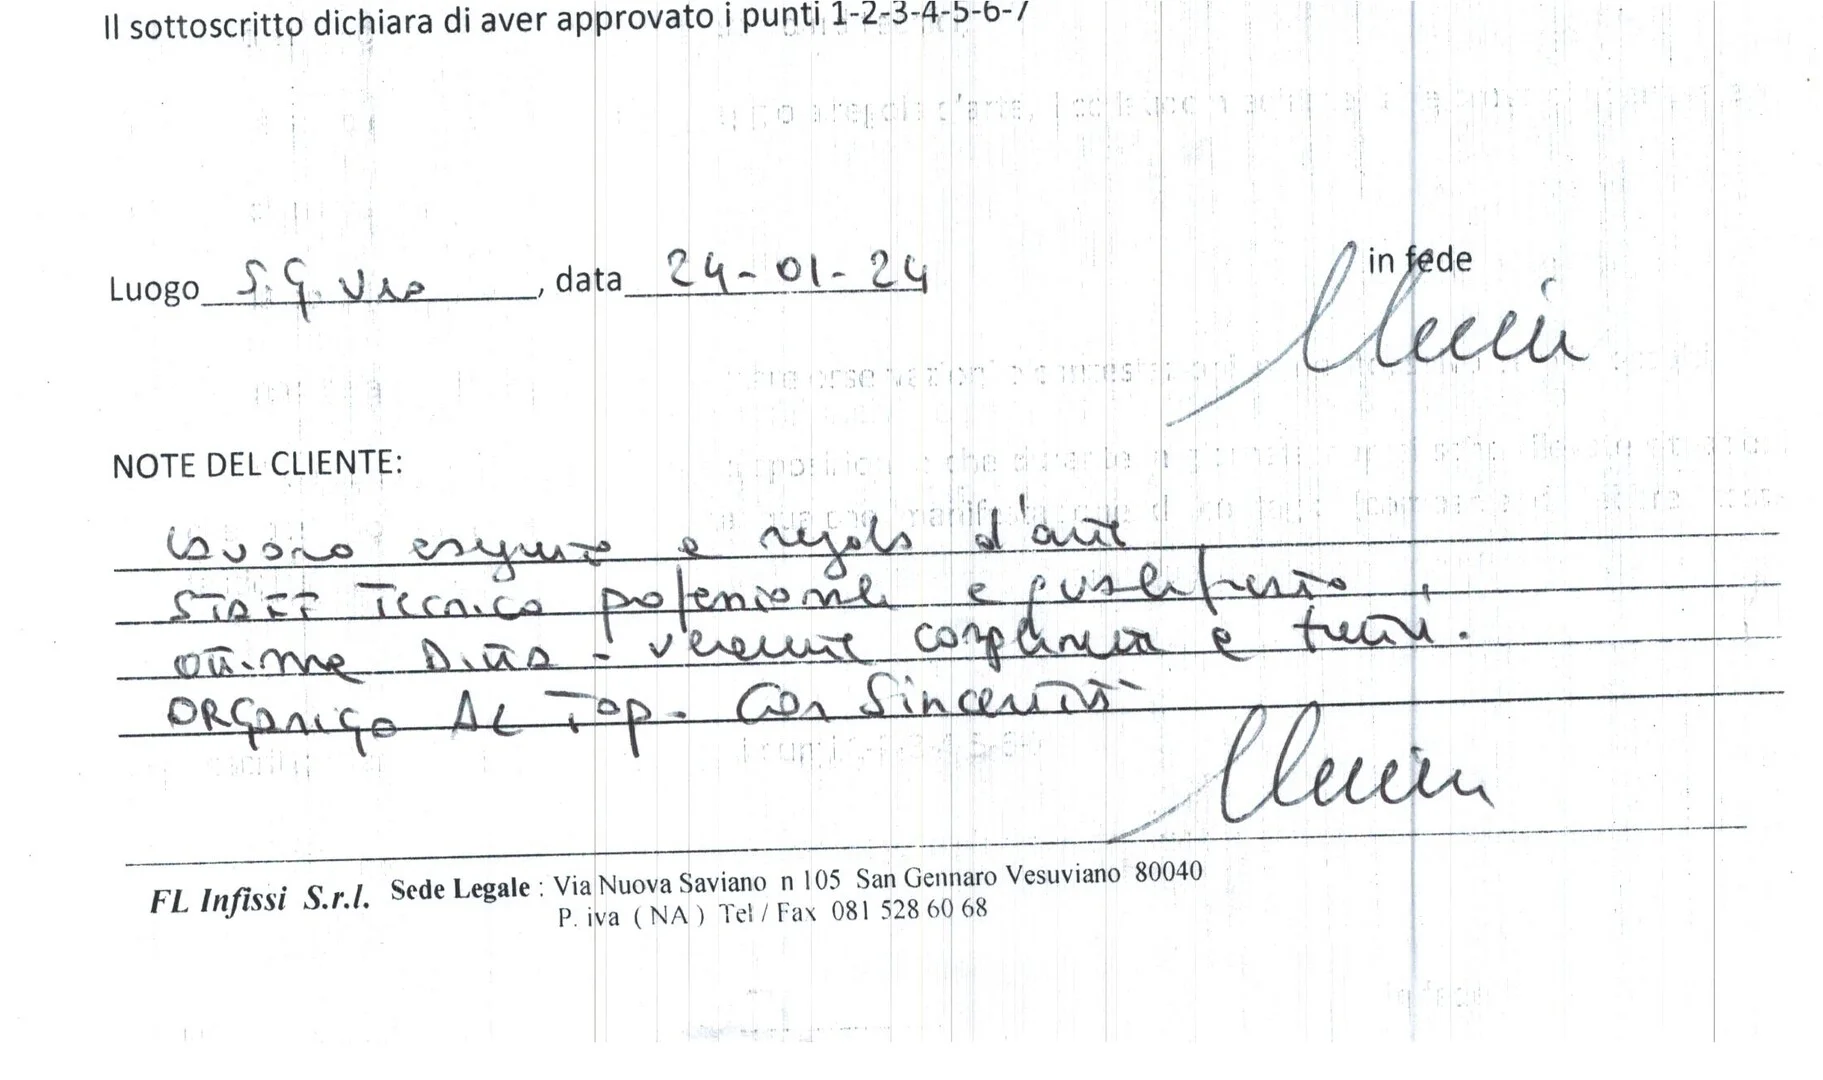 Il sottoscritto dichiara di aver approvato i punti 1-2-3-4-5-6-7
Luogo S.G. Ves, data 24-01-24
in fede
NOTE DEL CLIENTE:
Lavoro eseguito a regola d'arte
STAFF Tecnico
ottima Ditta - veramente complimenti a tutti.
ORGANICO AL TOP. Con Sincerità
FL Infissi S.r.l. Sede Legale : Via Nuova Saviano n 105 San Gennaro Vesuviano 80040
P. iva ( NA ) Tel / Fax 081 528 60 68